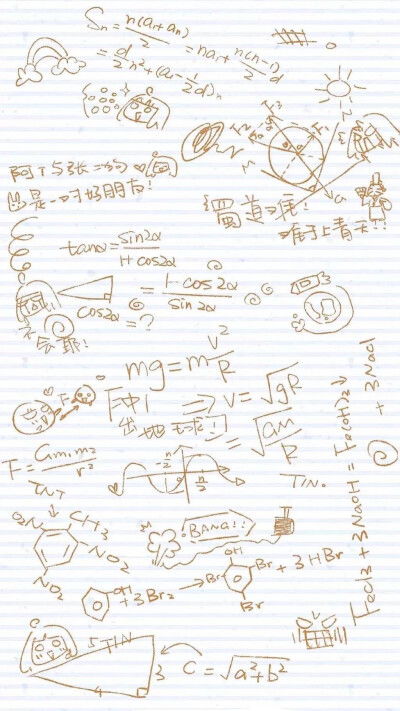 Sn = n(a₁+an)/2 = na₁ + n(n-1)/2 d
= d/2 n² + (a₁ - 1/2 d)n
是一对好朋友!
蜀道难!
难于上青天!!
tanα = sin2α/1+cos2α
= 1-cos2α/sin2α
cos2α = ?
不会耶!
mg = m V²/R
⇒ V = √gR
F
= √GM/R
出地球!
F = Gm₁m₂/r²
-π/2
π/2
TIN.
TNT
O₂N
CH₃
NO₂
NO₂
BANG!!
OH
+ 3Br₂ →
OH
Br
Br
Br
+ 3HBr
FeCl₃ + 3NaOH = Fe(OH)₃ ↓ + 3NaCl
5 TIN
3
4
C = √a²+b²